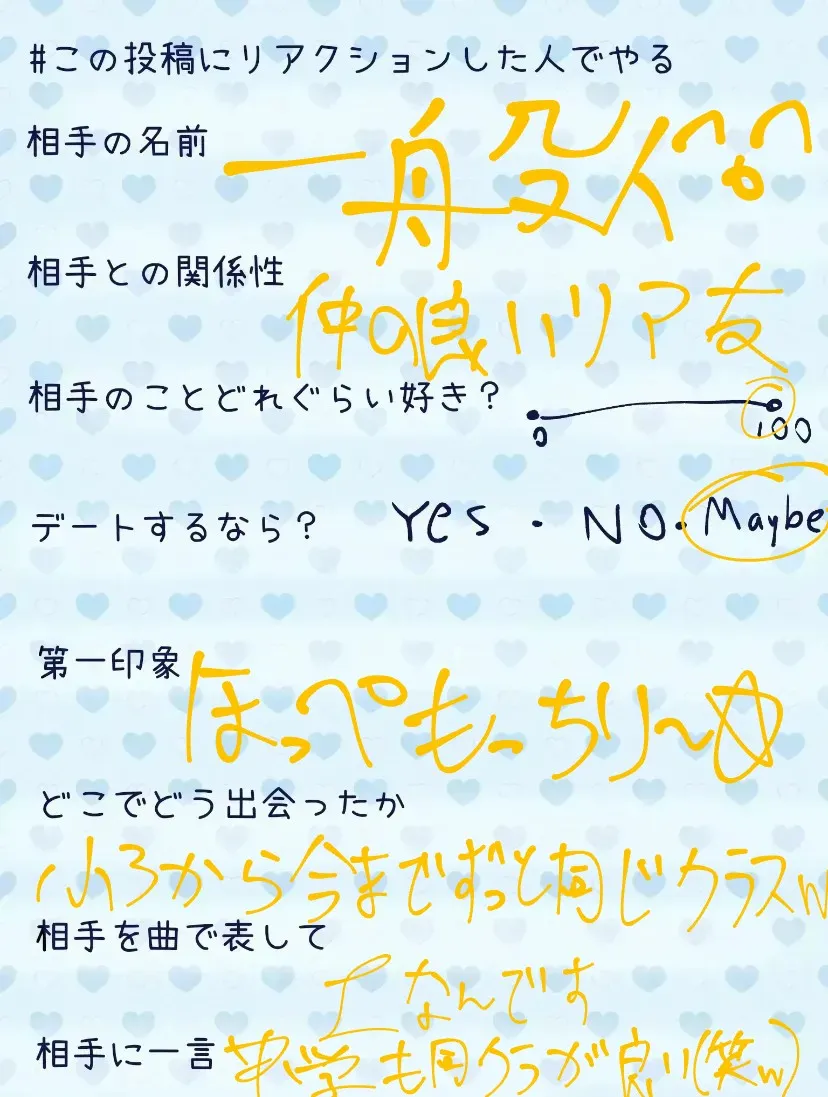 #この投稿にリアクションした人でやる
相手の名前 一般人^^
相手との関係性 仲の良いリア友
相手のことどれぐらい好き？ 0 100
デートするなら？ Yes・NO・Maybe
第一印象 ほっぺもっちり〜☆
どこでどう出会ったか
小3から今までずっと同じクラスw
相手を曲で表して
なんです
相手に一言 中学も同クラが良い(笑w)